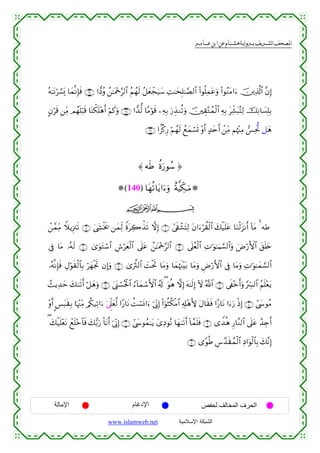 المصحف الشريف برواية هشام عن ابن عامر
إِنَّ ٱلَّذِينَ ءَامَنُواْ وَعَمِلُواْ ٱلصَّٰلِحَٰتِ سَيَجۡعَلُ لَهُمُ ٱلرَّحۡمَٰنُ وُدّٗا فَإِنَّمَا يَسَّرۡنَٰهُ
بِلِسَانِكَ لِتُبَشِّرَ بِهِ ٱلۡمُتَّقِينَ وَتُنذِرَ بِهِۦ قَوۡمٗا لُّدّٗا وَكَمۡ أَهۡلَكۡنَا قَبۡلَهُم مِّن قَرۡنٍ
هَلۡ تُحِسُّ مِنۡهُم مِّنۡ أَحَدٍ أَوۡ تَسۡمَعُ لَهُمۡ رِكۡزَۢا
﴿ سُورَةُ طه ﴾
*مَكِّيَّة وَءَايَاتُهَا (140)*
بِسۡمِ ٱللَّهِ ٱلرَّحۡمَٰنِ ٱلرَّحِيمِ
طه ۚ مَآ أَنزَلۡنَا عَلَيۡكَ ٱلۡقُرۡءَانَ لِتَشۡقَىٰٓ إِلَّا تَذۡكِرَةٗ لِّمَن يَخۡشَىٰ تَنزِيلٗا مِّمَّنۡ
خَلَقَ ٱلۡأَرۡضَ وَٱلسَّمَٰوَٰتِ ٱلۡعُلَى ٱلرَّحۡمَٰنُ عَلَى ٱلۡعَرۡشِ ٱسۡتَوَىٰ لَهُۥ مَا فِي
ٱلسَّمَٰوَٰتِ وَمَا فِي ٱلۡأَرۡضِ وَمَا بَيۡنَهُمَا وَمَا تَحۡتَ ٱلثَّرَىٰ وَإِن تَجۡهَرۡ بِٱلۡقَوۡلِ فَإِنَّهُۥ
يَعۡلَمُ ٱلسِّرَّ وَأَخۡفَى ٱللَّهُ لَآ إِلَٰهَ إِلَّا هُوَ لَهُ ٱلۡأَسۡمَآءُ ٱلۡحُسۡنَىٰ وَهَلۡ أَتَىٰكَ حَدِيثُ
مُوسَىٰٓ إِذۡ رَءَا نَارٗا فَقَالَ لِأَهۡلِهِ ٱمۡكُثُوٓاْ إِنِّيٓ ءَانَسۡتُ نَارٗا لَّعَلِّيَ ءَاتِيكُم مِّنۡهَا بِقَبَسٍ أَوۡ
أَجِدُ عَلَى ٱلنَّارِ هُدٗى فَلَمَّآ أَتَىٰهَا نُودِيَ يَٰمُوسَىٰٓ إِنِّيٓ أَنَا۠ رَبُّكَ فَٱخۡلَعۡ نَعۡلَيۡكَ
إِنَّكَ بِٱلۡوَادِ ٱلۡمُقَدَّسِ طُوٗى
الحرف المخالف لحفص الإدغام الإمالة
الشبكة الإسلامية www.islamweb.net